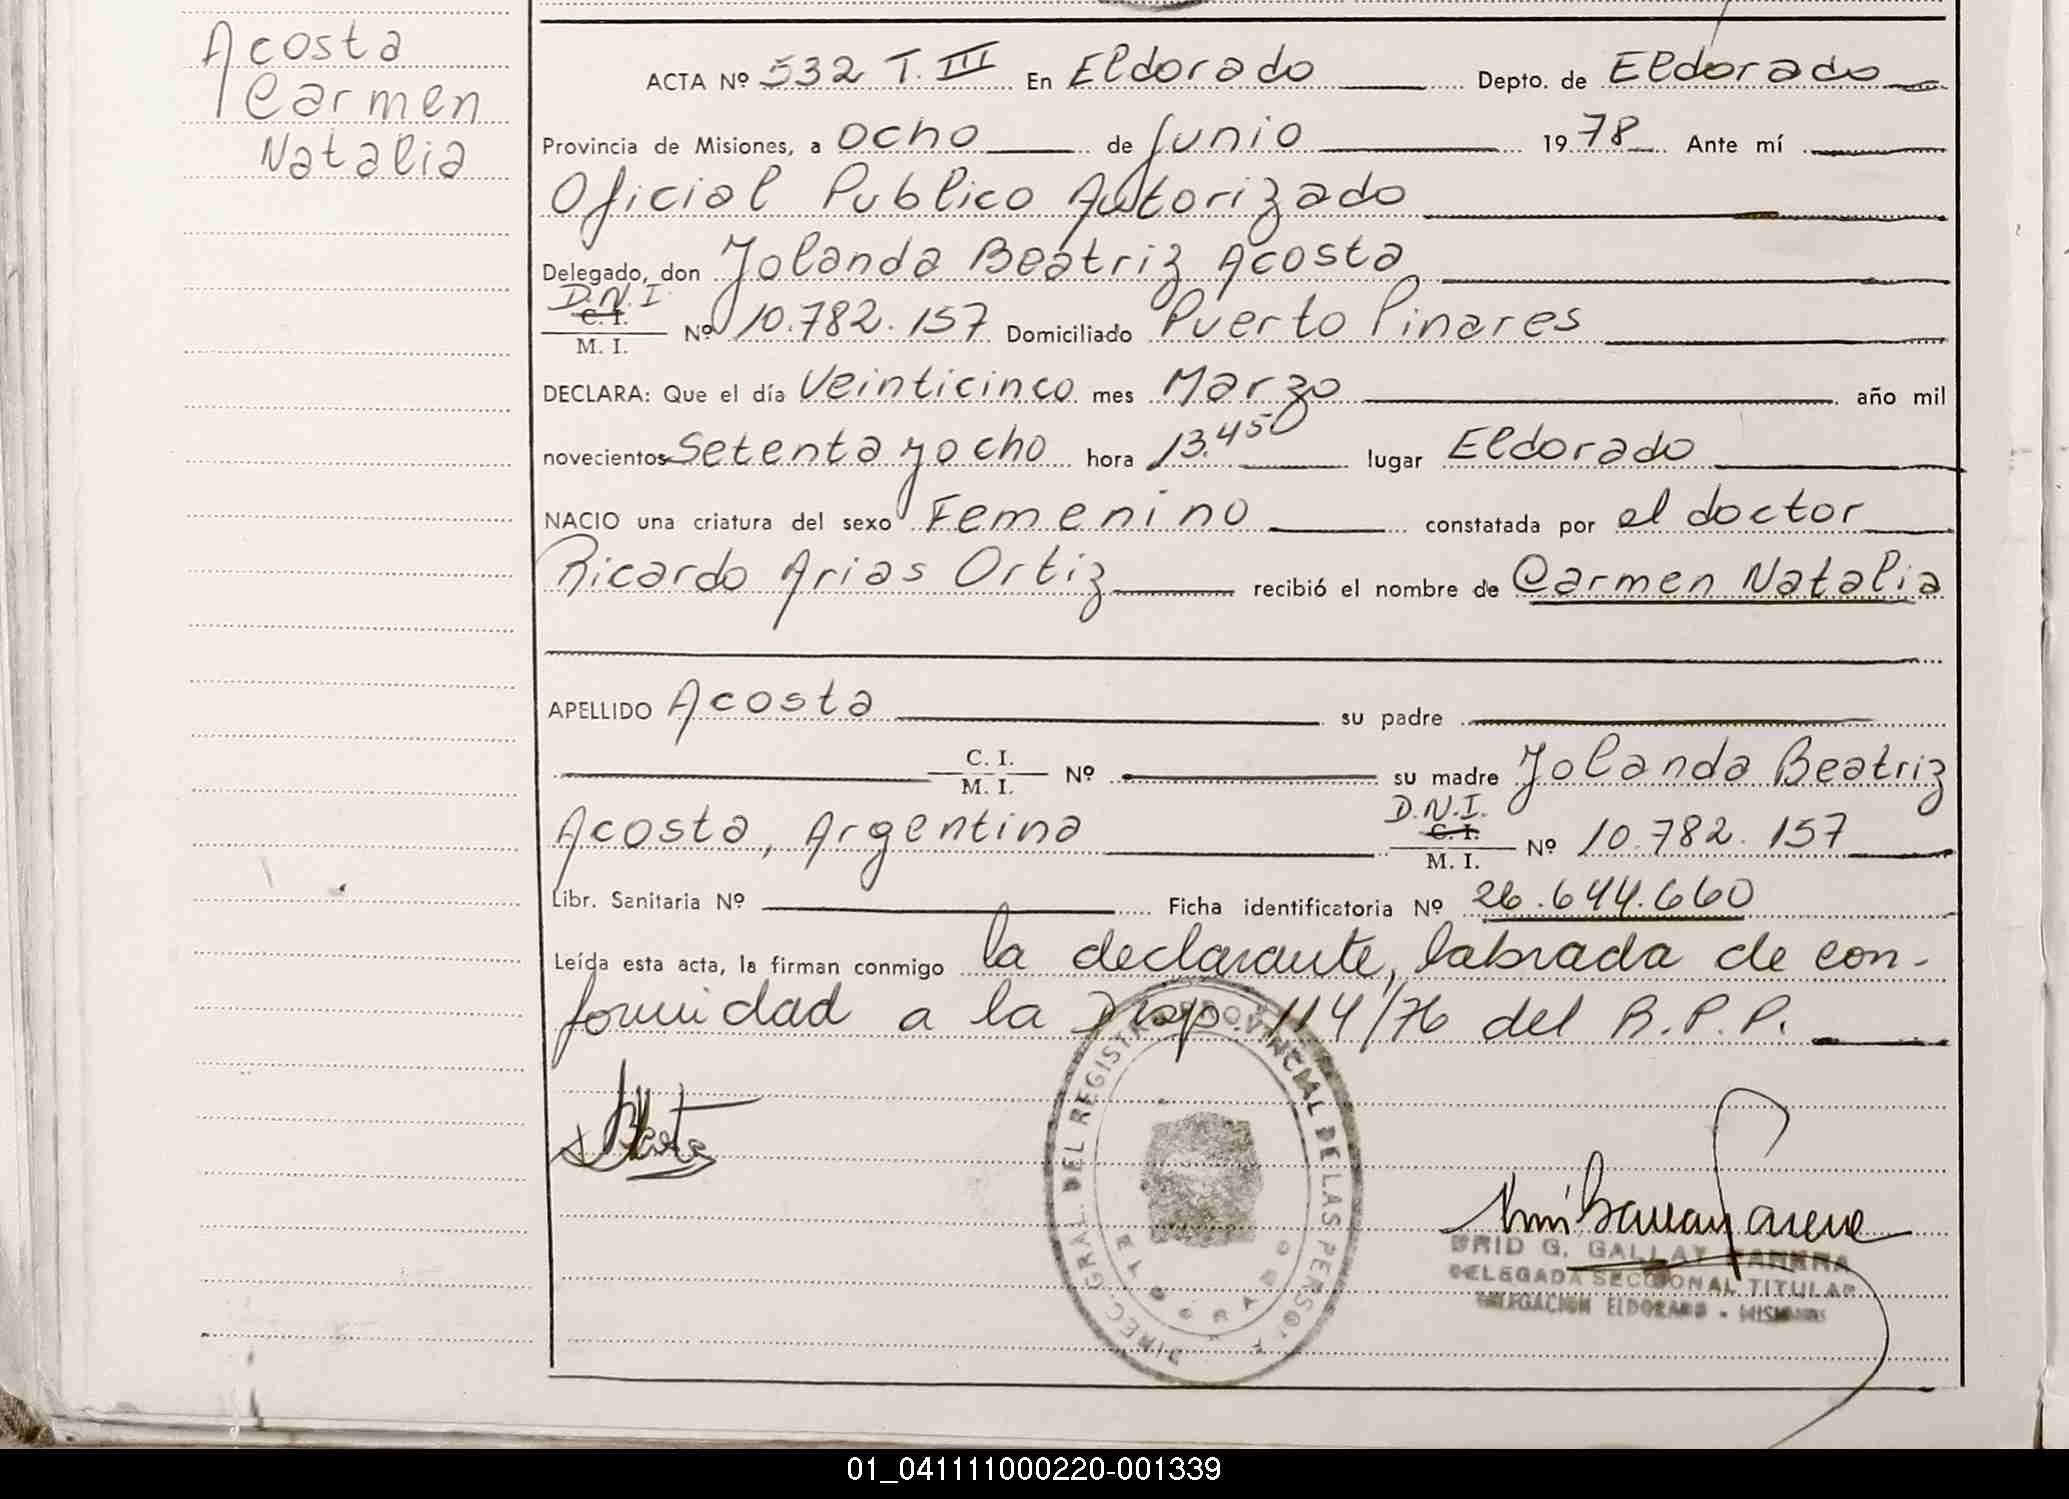 Acosta
Carmen
Natalia
ACTA Nº 532 T. III En Eldorado Depto. de Eldorado
Provincia de Misiones, a ocho de Junio 1978 Ante mí
Oficial Publico Autorizado
Delegado, don Yolanda Beatriz Acosta
D.N.I
C. I.
M. I. Nº 10.782.157 Domiciliado Puerto Pinares
DECLARA: Que el día Veinticinco mes Marzo año mil
novecientos Setenta y ocho hora 13.45 lugar Eldorado
NACIO una criatura del sexo Femenino constatada por el doctor
Ricardo Arias Ortiz recibió el nombre de Carmen Natalia
APELLIDO Acosta su padre
C. I.
M. I. Nº su madre Yolanda Beatriz
Acosta, Argentina D.N.I.
C. I.
M. I. Nº 10.782.157
Libr. Sanitaria Nº Ficha identificatoria Nº 26.644.660
Leída esta acta, la firman conmigo la declarante, labrada de con-
formidad a la Disp. 114/76 del R.P.P.
DIREC. GRAL. DEL REGISTRO PROVINCIAL DE LAS PERSONAS
ELDORADO
G. GALLAY
DELEGADA SECCIONAL TITULAR
DELEGACION ELDORADO - MISIONES
01_041111000220-001339